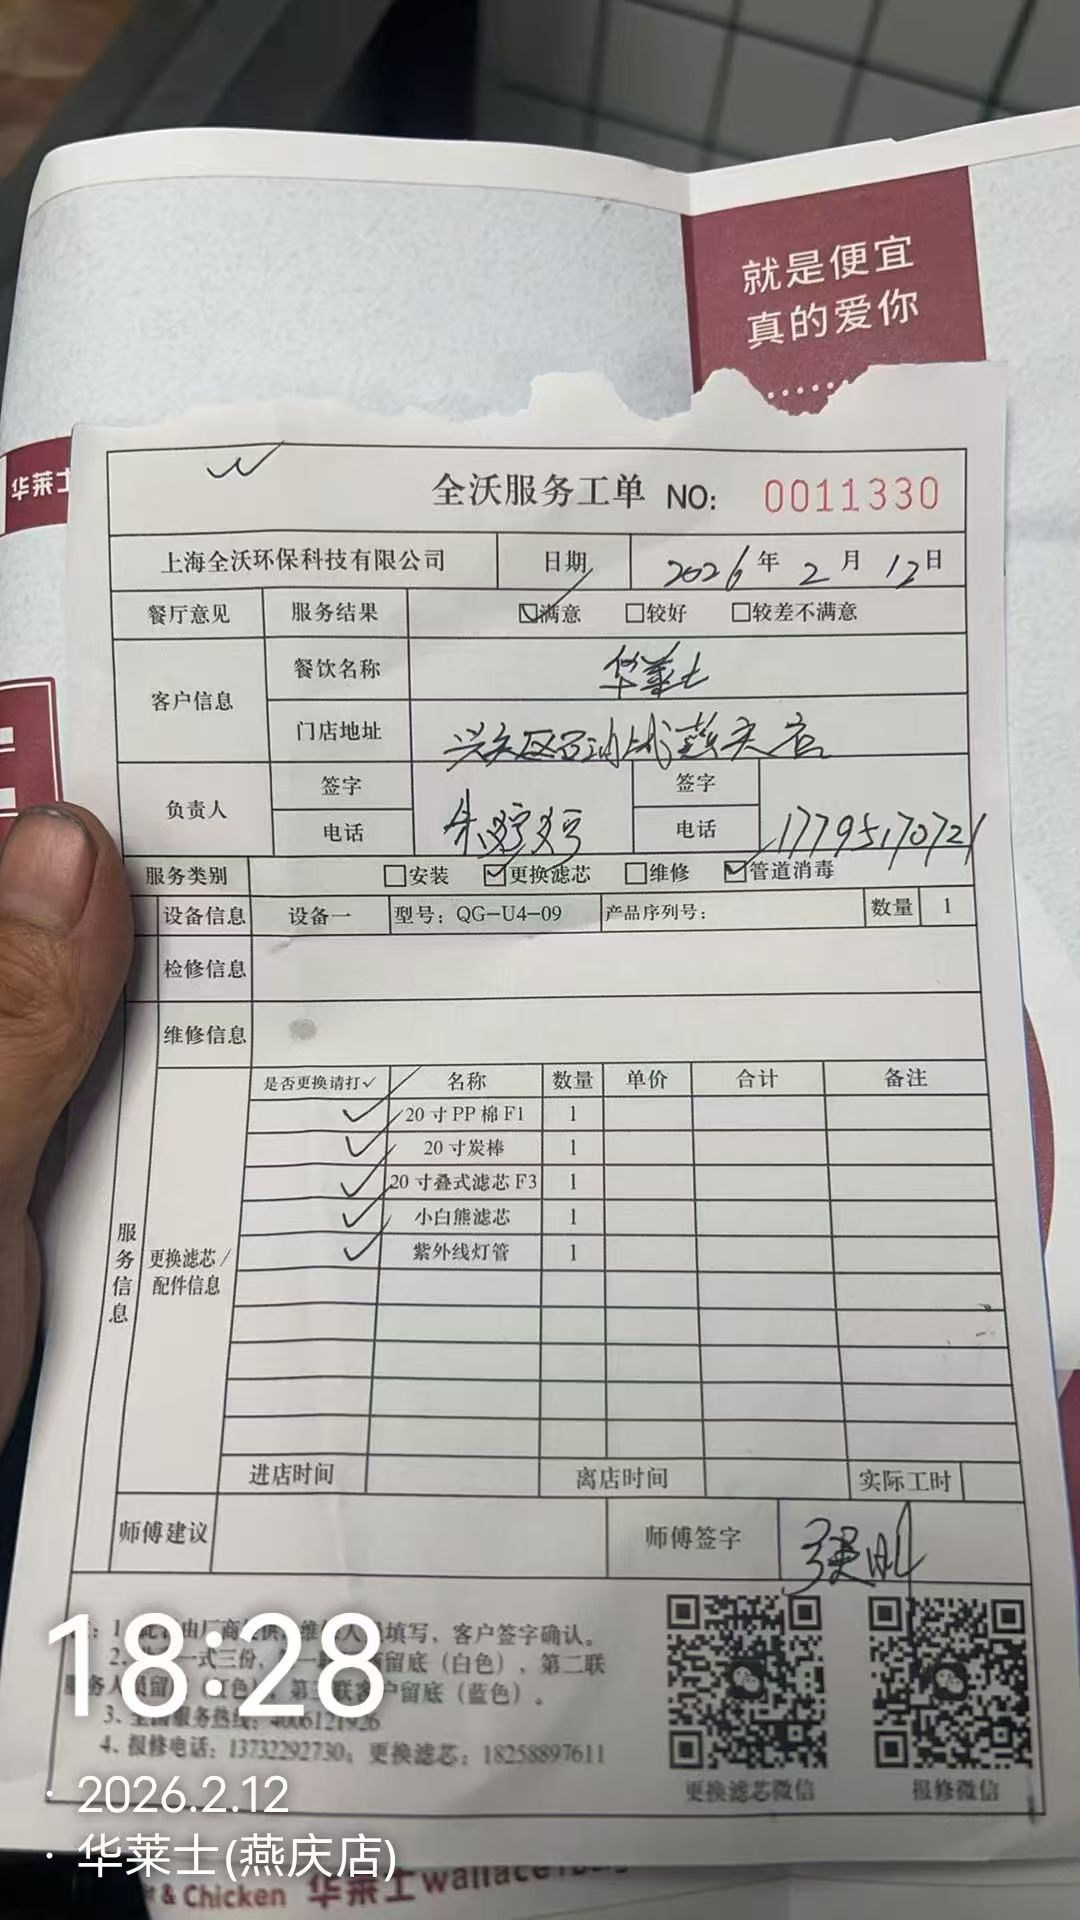 就是便宜
真的爱你
华莱士
全沃服务工单 NO: 0011330
上海全沃环保科技有限公司 日期 2026年 2月 12日
餐厅意见 服务结果 ☑满意 □较好 □较差不满意
客户信息 餐饮名称 华莱士
门店地址
负责人 签字 签字
电话 电话 17795170721
服务类别 □安装 ☑更换滤芯 □维修 ☑管道消毒
设备信息 设备一 型号：QG-U4-09 产品序列号： 数量 1
检修信息
维修信息
是否更换请打✓ 名称 数量 单价 合计 备注
✓ 20寸PP棉F1 1
✓ 20寸炭棒 1
✓ 20寸叠式滤芯F3 1
✓ 小白熊滤芯 1
✓ 紫外线灯管 1
服务信息
更换滤芯/
配件信息
进店时间 离店时间 实际工时
师傅建议 师傅签字
填写，客户签字确认。
一式三份， 留底（白色），第二联
客户留底（蓝色）。
3、全国服务热线：4006121926
4、报修电话：13732292730；更换滤芯：18258897611
更换滤芯微信 报修微信
18:28
2026.2.12
华莱士(燕庆店)
& Chicken 华莱士 wallace